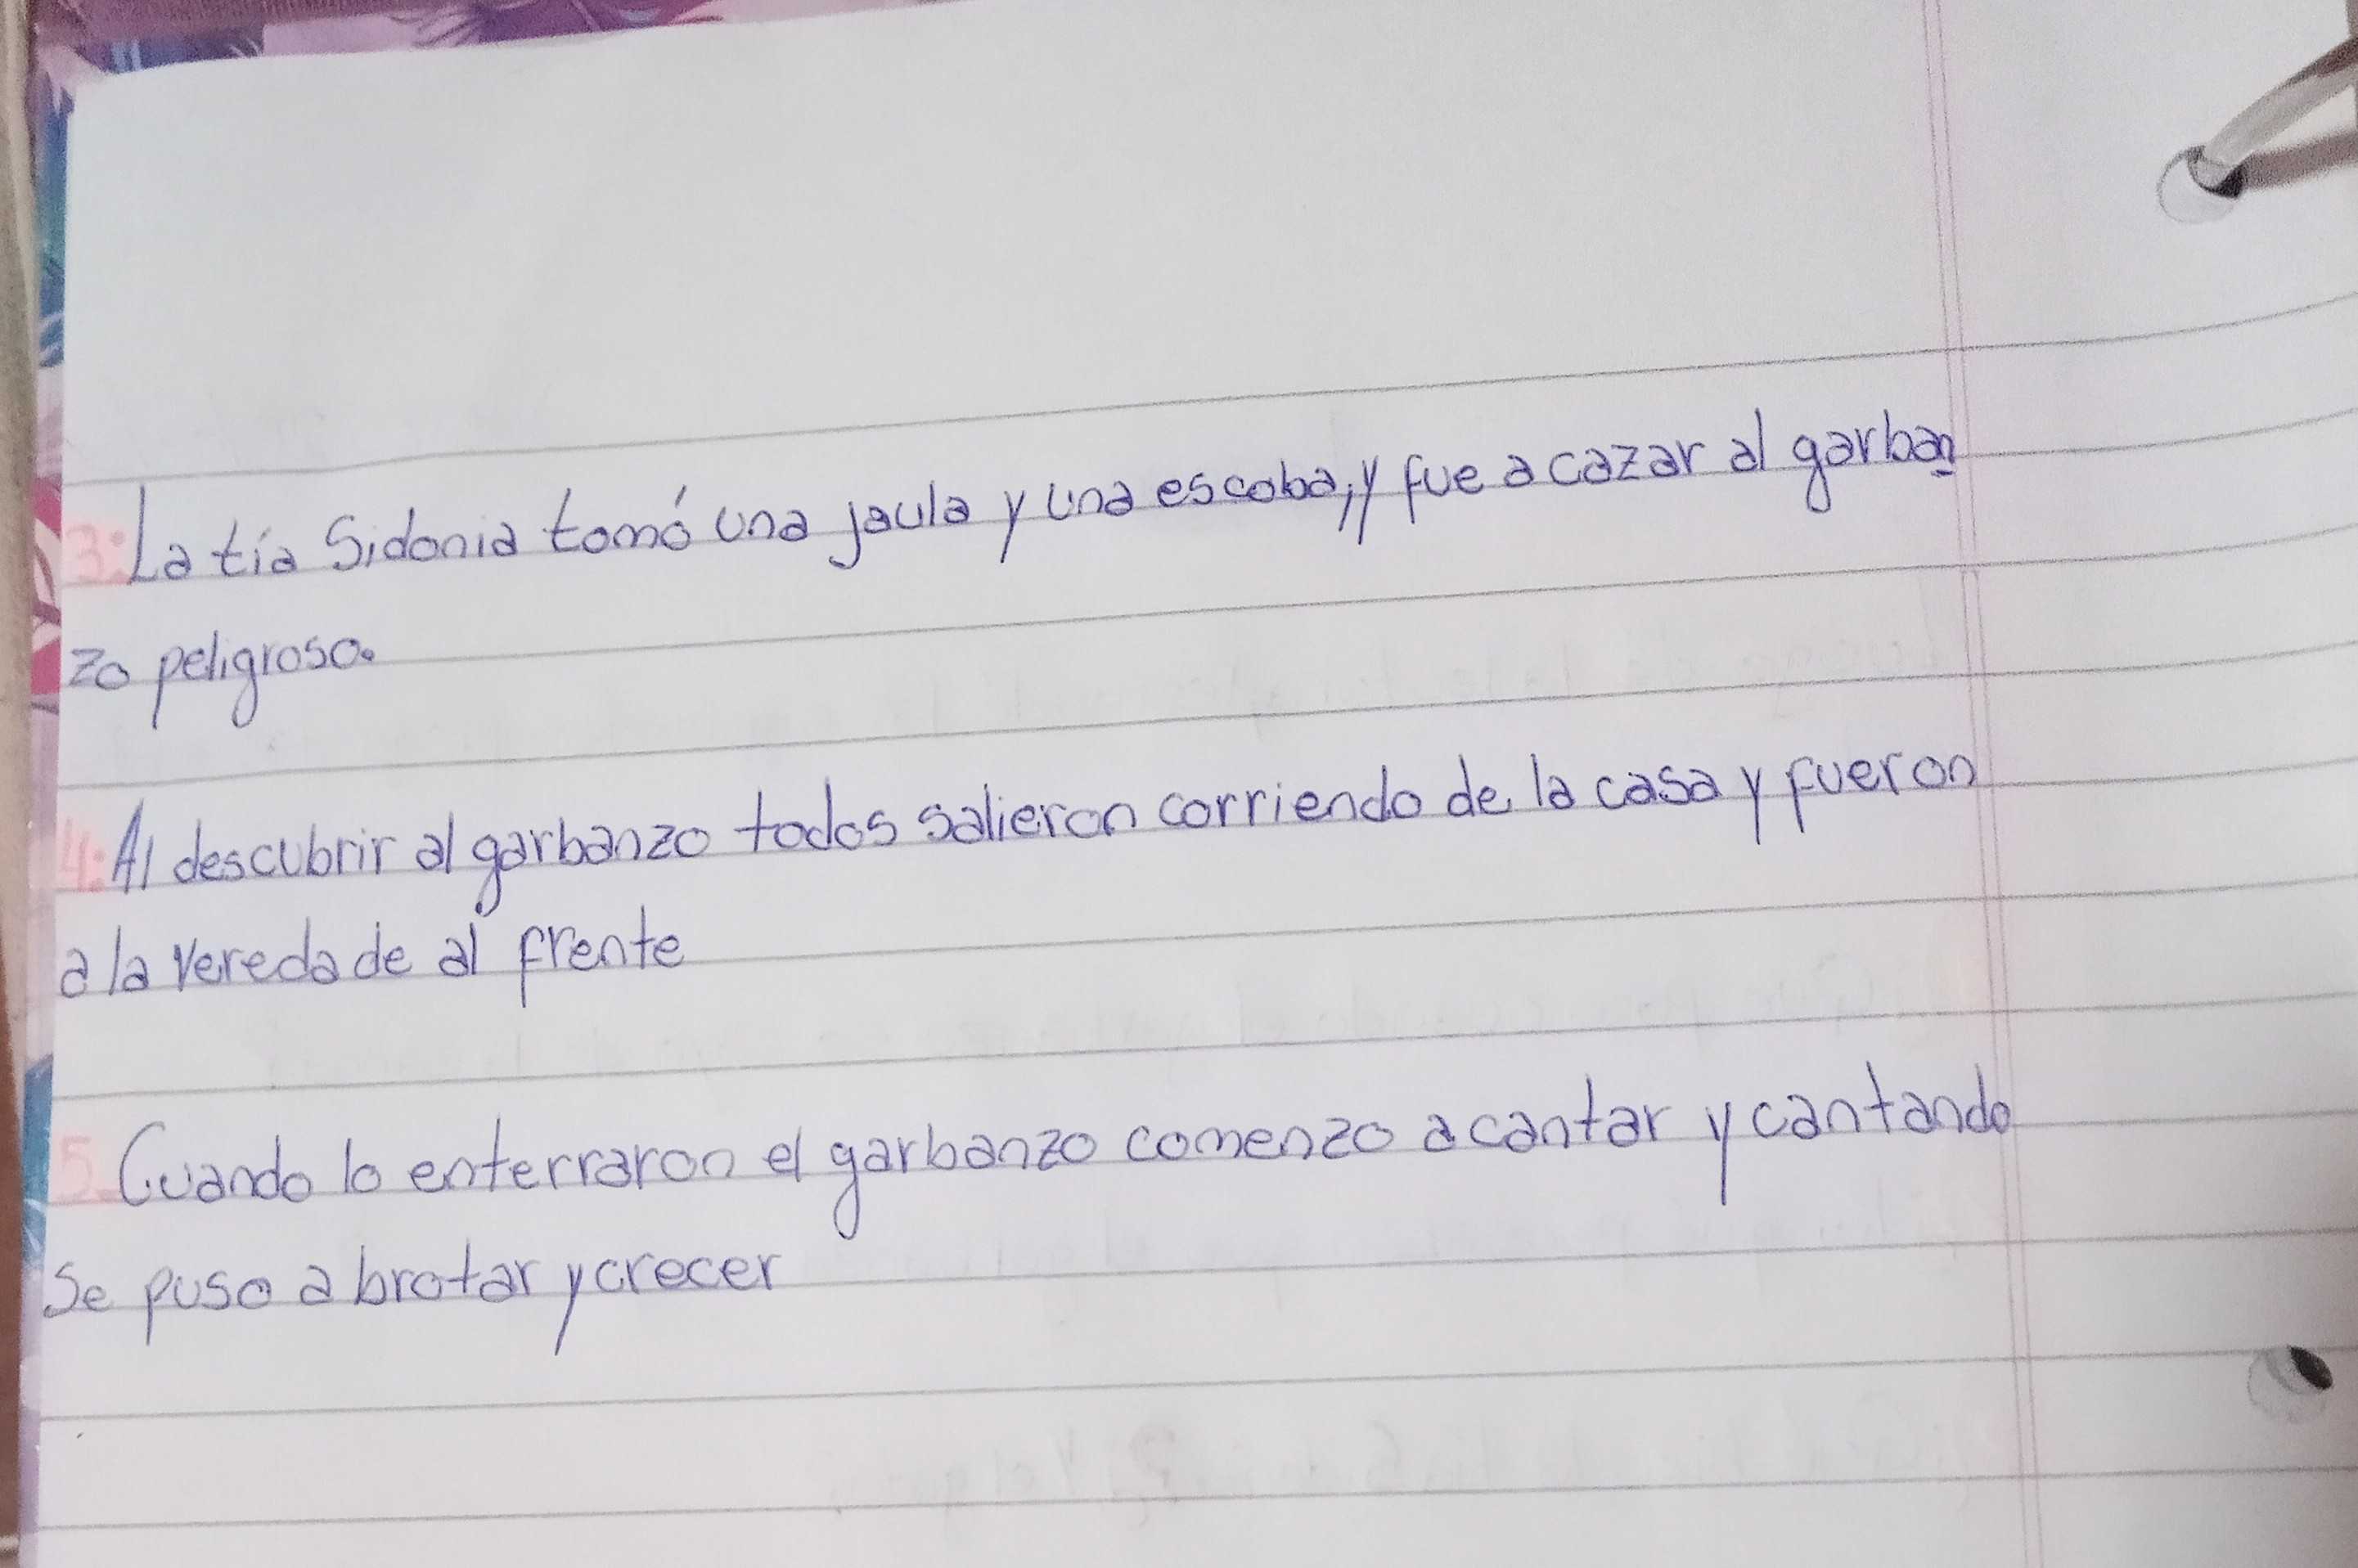 3: La tía Sidonia tomó una jaula y una escoba, y fue a cazar al garban
zo peligroso.
4: Al descubrir al garbanzo todos salieron corriendo de la casa y fueron
a la vereda de al frente
5. Cuando lo enterraron el garbanzo comenzo a cantar y cantando
Se puso a brotar y crecer